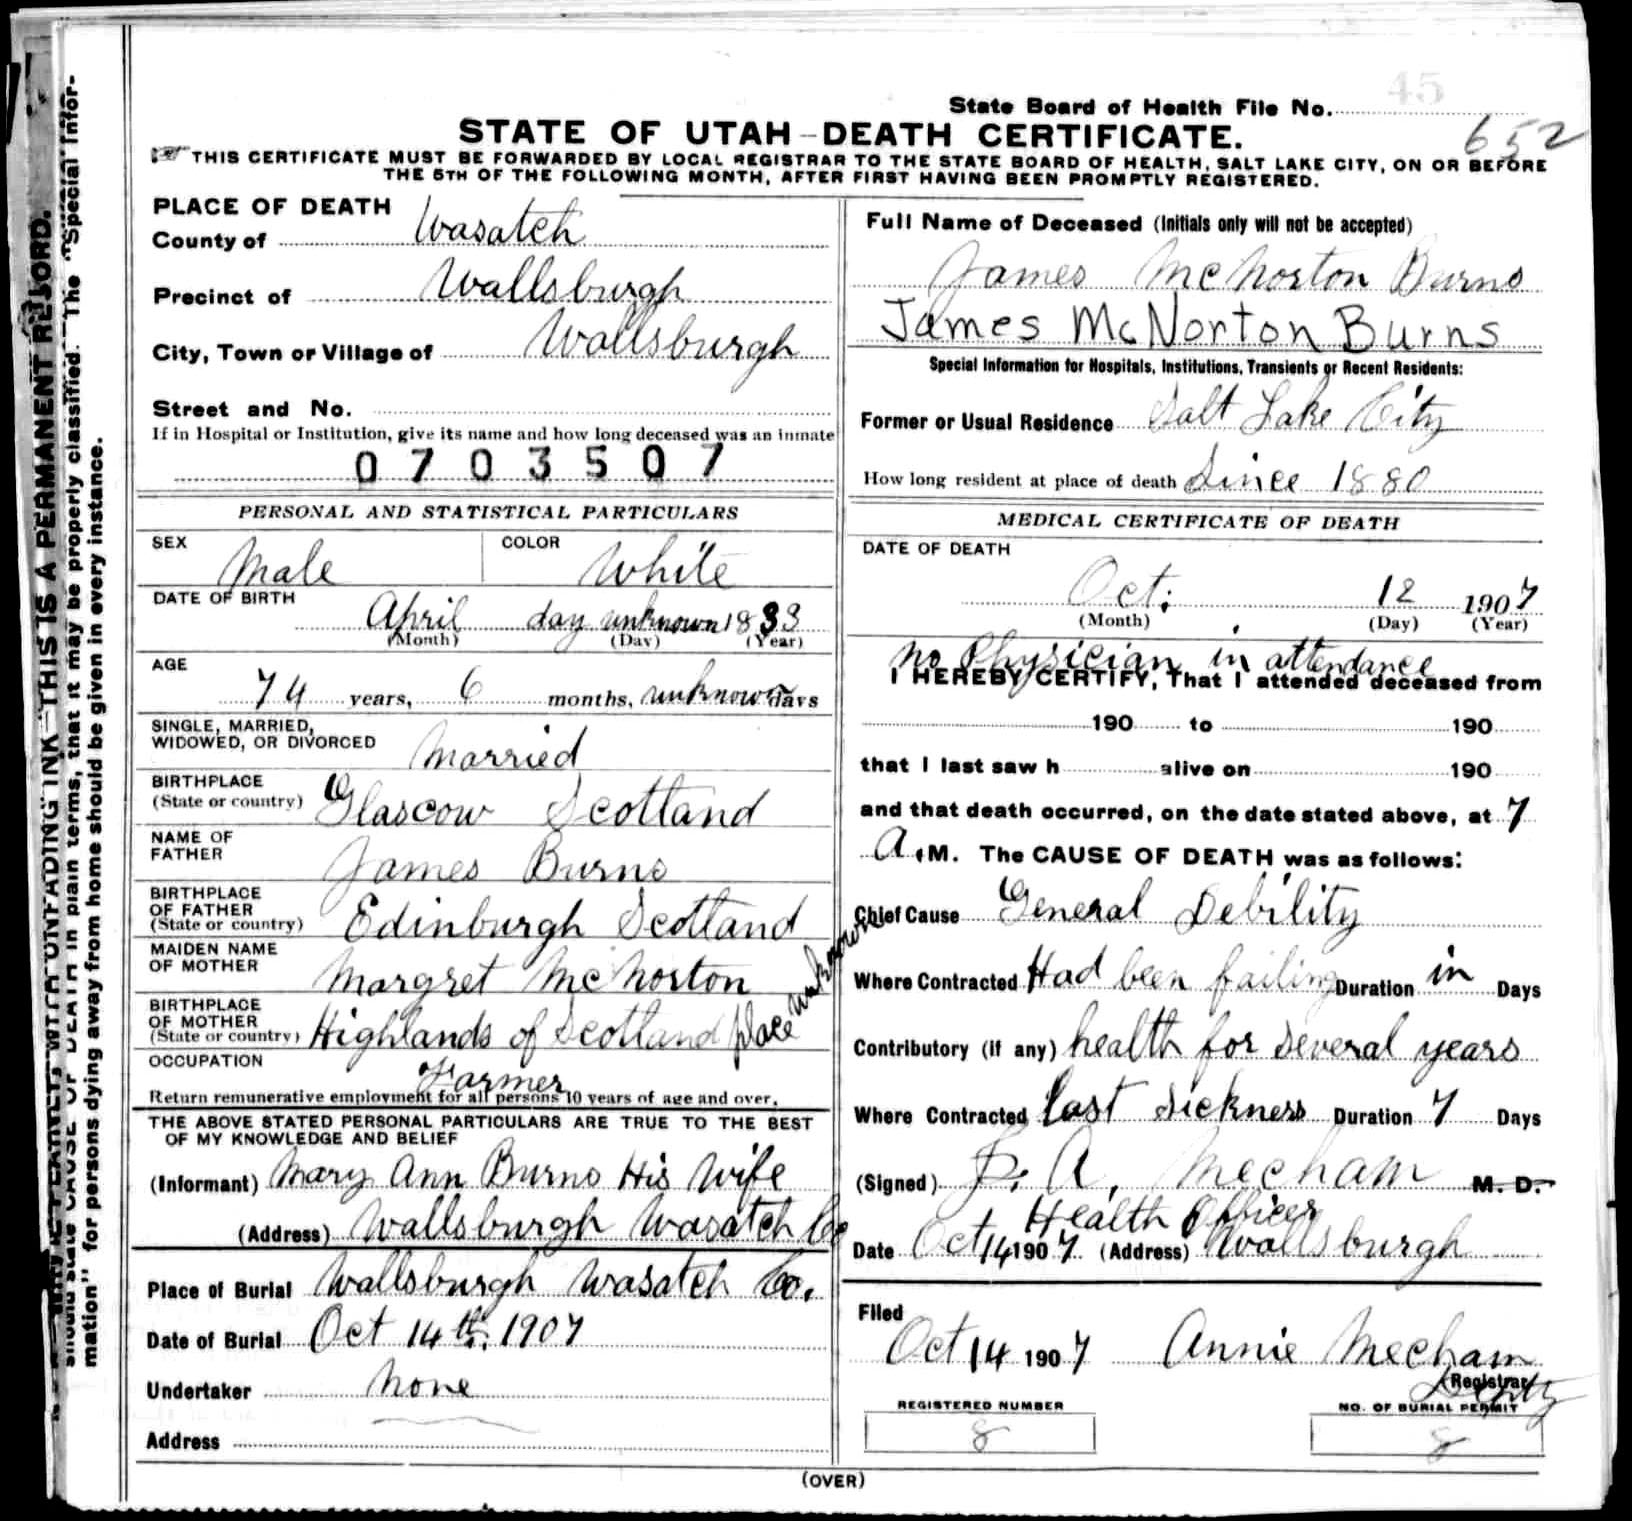 45
State Board of Health File No.
652
STATE OF UTAH—DEATH CERTIFICATE.
THIS CERTIFICATE MUST BE FORWARDED BY LOCAL REGISTRAR TO THE STATE BOARD OF HEALTH, SALT LAKE CITY, ON OR BEFORE
THE 5TH OF THE FOLLOWING MONTH, AFTER FIRST HAVING BEEN PROMPTLY REGISTERED.
PLACE OF DEATH
County of Wasatch
Precinct of Wallsburgh
City, Town or Village of Wallsburgh
Street and No.
If in Hospital or Institution, give its name and how long deceased was an inmate
0703507
PERSONAL AND STATISTICAL PARTICULARS
SEX Male COLOR White
DATE OF BIRTH
April day unknown 1833
(Month) (Day) (Year)
AGE
74 years, 6 months, unknown days
SINGLE, MARRIED,
WIDOWED, OR DIVORCED Married
BIRTHPLACE
(State or country) Glascow Scotland
NAME OF
FATHER James Burns
BIRTHPLACE
OF FATHER
(State or country) Edinburgh Scotland
MAIDEN NAME
OF MOTHER Margret McNorton
BIRTHPLACE
OF MOTHER
(State or country) Highlands of Scotland place unknown
OCCUPATION
Farmer
Return remunerative employment for all persons 10 years of age and over.
THE ABOVE STATED PERSONAL PARTICULARS ARE TRUE TO THE BEST
OF MY KNOWLEDGE AND BELIEF
(Informant) Mary Ann Burns His Wife
(Address) Wallsburgh Wasatch Co
Place of Burial Wallsburgh Wasatch Co.
Date of Burial Oct 14th. 1907
Undertaker None
Address
Full Name of Deceased (Initials only will not be accepted)
James McNorton Burns
James McNorton Burns
Special Information for Hospitals, Institutions, Transients or Recent Residents:
Former or Usual Residence Salt Lake City
How long resident at place of death Since 1880
MEDICAL CERTIFICATE OF DEATH
DATE OF DEATH
Oct. 12 1907
(Month) (Day) (Year)
No Physician in attendance
I HEREBY CERTIFY, That I attended deceased from
190 to 190
that I last saw h alive on 190
and that death occurred, on the date stated above, at 7
A.M. The CAUSE OF DEATH was as follows:
Chief Cause General Debility
Where Contracted Had been failing Duration in Days
Contributory (if any) health for several years
Where Contracted last sickness Duration 7 Days
(Signed) D. A. Mecham M. D.
Health Officer
Date Oct 14 1907. (Address) Wallsburgh
Filed
Oct 14 1907 Annie Mecham
Registrar
Deputy
REGISTERED NUMBER NO. OF BURIAL PERMIT
8 8
(OVER)
THIS IS A PERMANENT RECORD.
CAUSE OF DEATH in plain terms, that it may be properly classified. The "Special Infor-
mation" for persons dying away from home should be given in every instance.